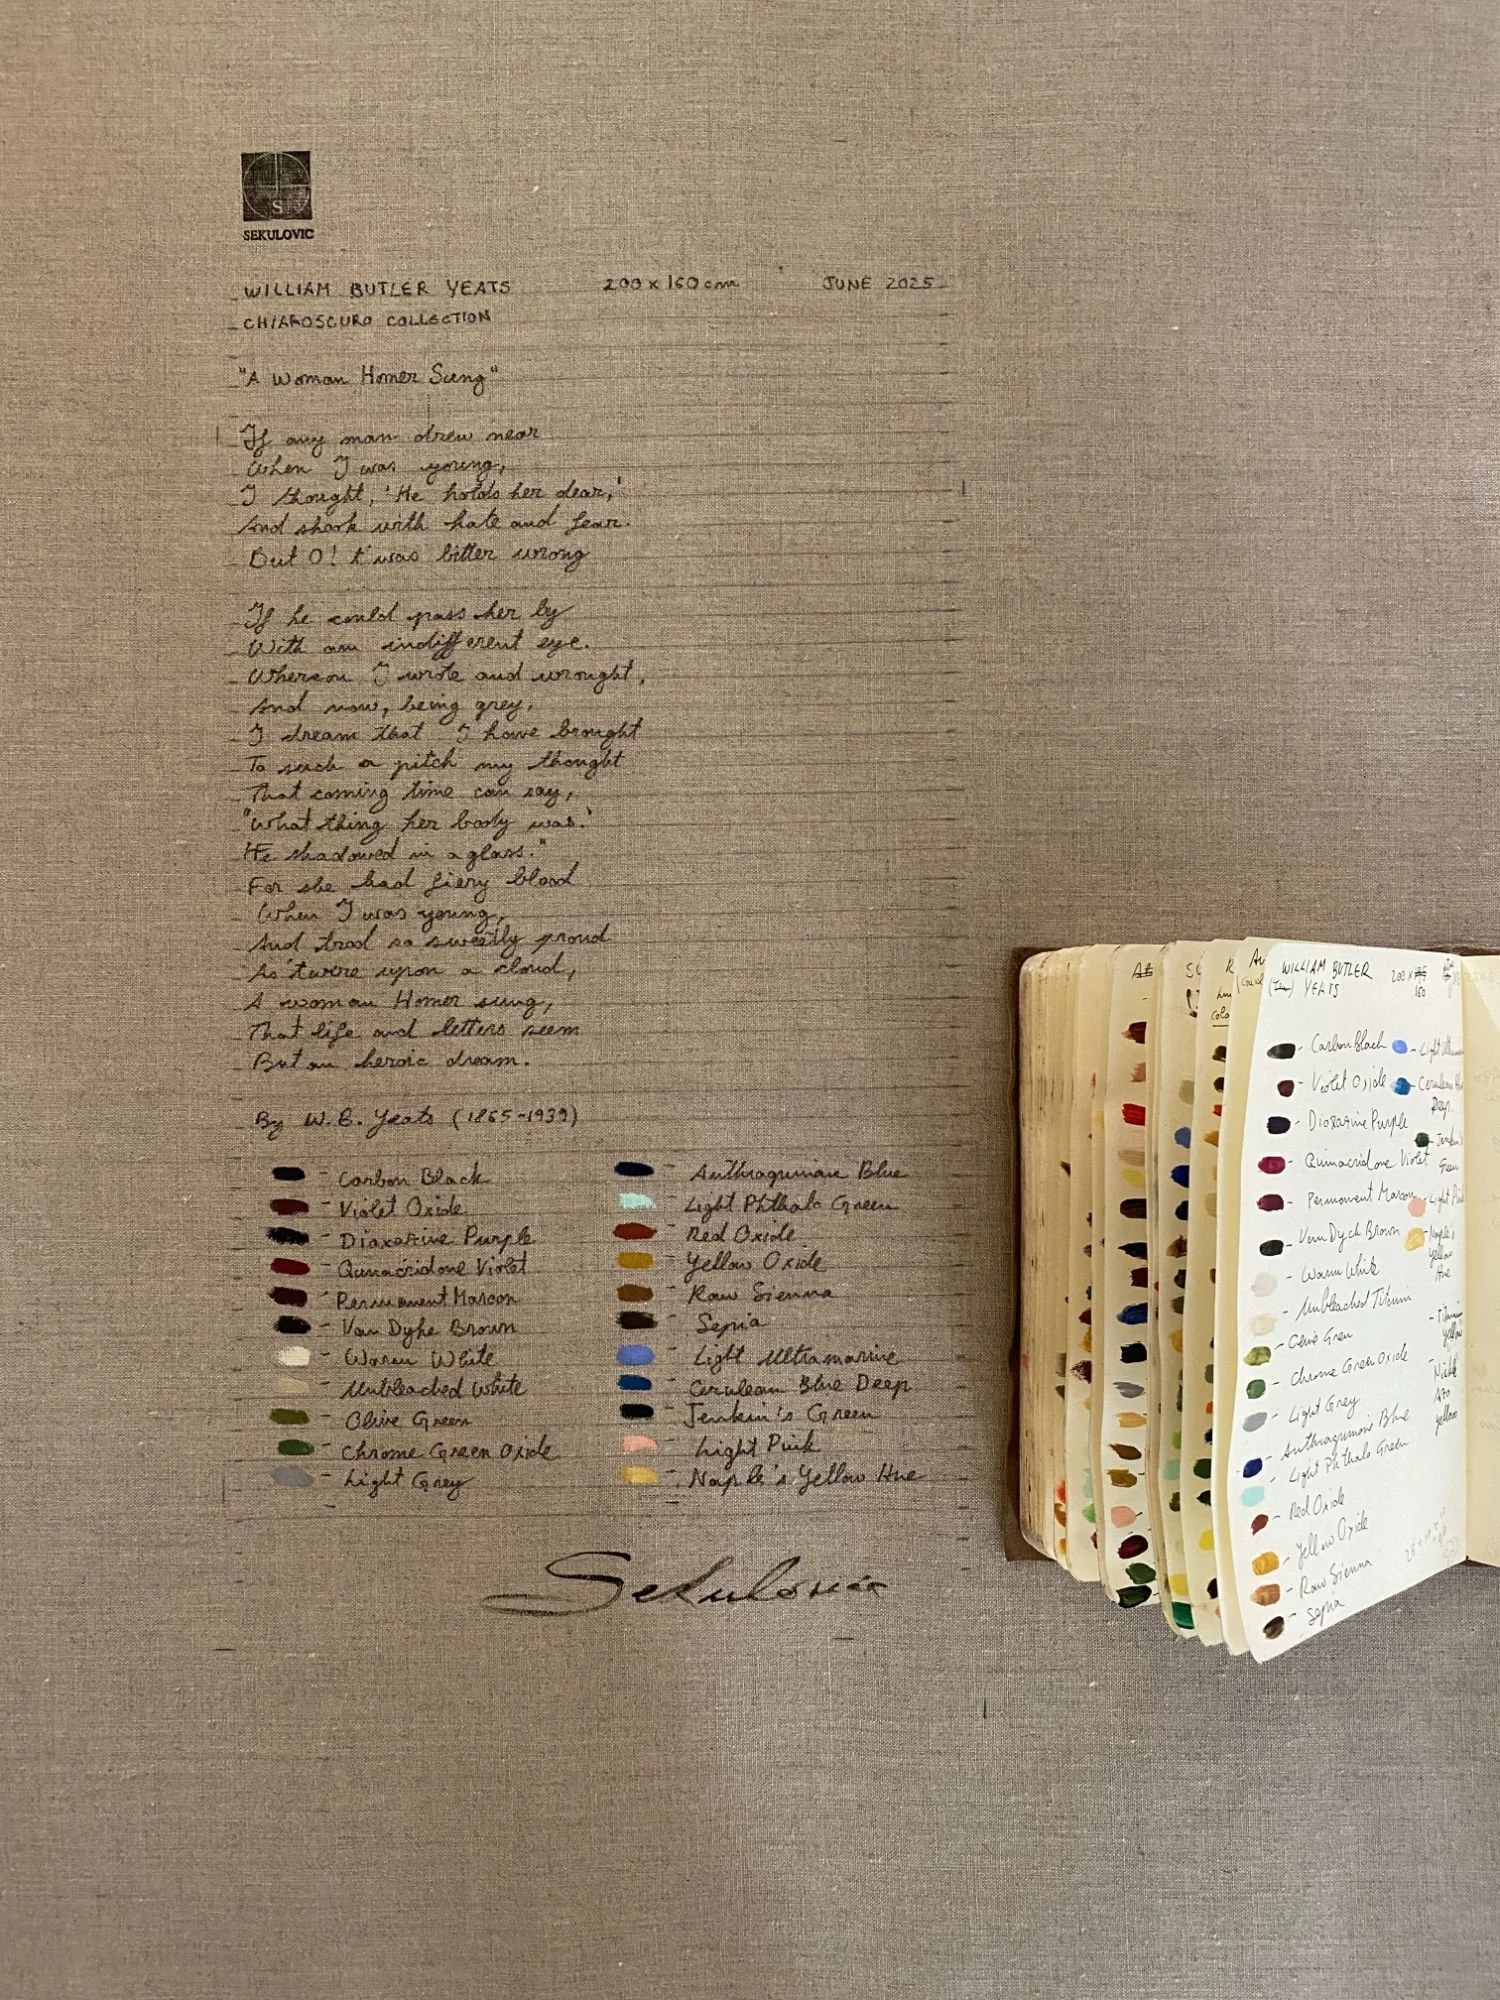 S
SEKULOVIC
WILLIAM BUTLER YEATS 200 x 160 cm JUNE 2025
CHIAROSCURO COLLECTION
"A Woman Homer Sung"
If any man drew near
When I was young,
I thought, 'He holds her dear,'
And shook with hate and fear.
But O! t'was bitter wrong
If he could pass her by
With an indifferent eye.
Whereon I wrote and wrought,
And now, being grey,
I dream that I have brought
To such a pitch my thought
That coming time can say,
"What thing her body was.'
He shadowed in a glass."
For she had fiery blood
When I was young,
And trod so sweetly proud
As 'twere upon a cloud,
A woman Homer sung,
That life and letters seem
But an heroic dream.
By W. B. Yeats (1865-1939)
- Carbon Black
- Violet Oxide
- Dioxazine Purple
- Quinacridone Violet
- Permanent Maroon
- Van Dyke Brown
- Warm White
- Unbleached White
- Olive Green
- Chrome Green Oxide
- Light Grey
- Anthraquinone Blue
- Light Phthalo Green
- Red Oxide
- Yellow Oxide
- Raw Sienna
- Sepia
- Light Ultramarine
- Cerulean Blue Deep
- Jenkin's Green
- Light Pink
- Naple's Yellow Hue
Sekulovic
WILLIAM BUTLER 200 x
YEATS 160
- Carbon Black
- Violet Oxide
- Dioxazine Purple
- Quinacridone Violet
- Permanent Maroon
- Van Dyck Brown
- Warm White
- Unbleached
- Green
- Chrome Green Oxide
- Light Grey
- Anthraquinone Blue
- Light Phthalo Green
- Red Oxide
- Yellow Oxide
- Raw Sienna
- Sepia
- Light
- Cerulean
Deep
Green
- Light
- Naple's
Yellow
Hue
Yellow
Azo
yellow